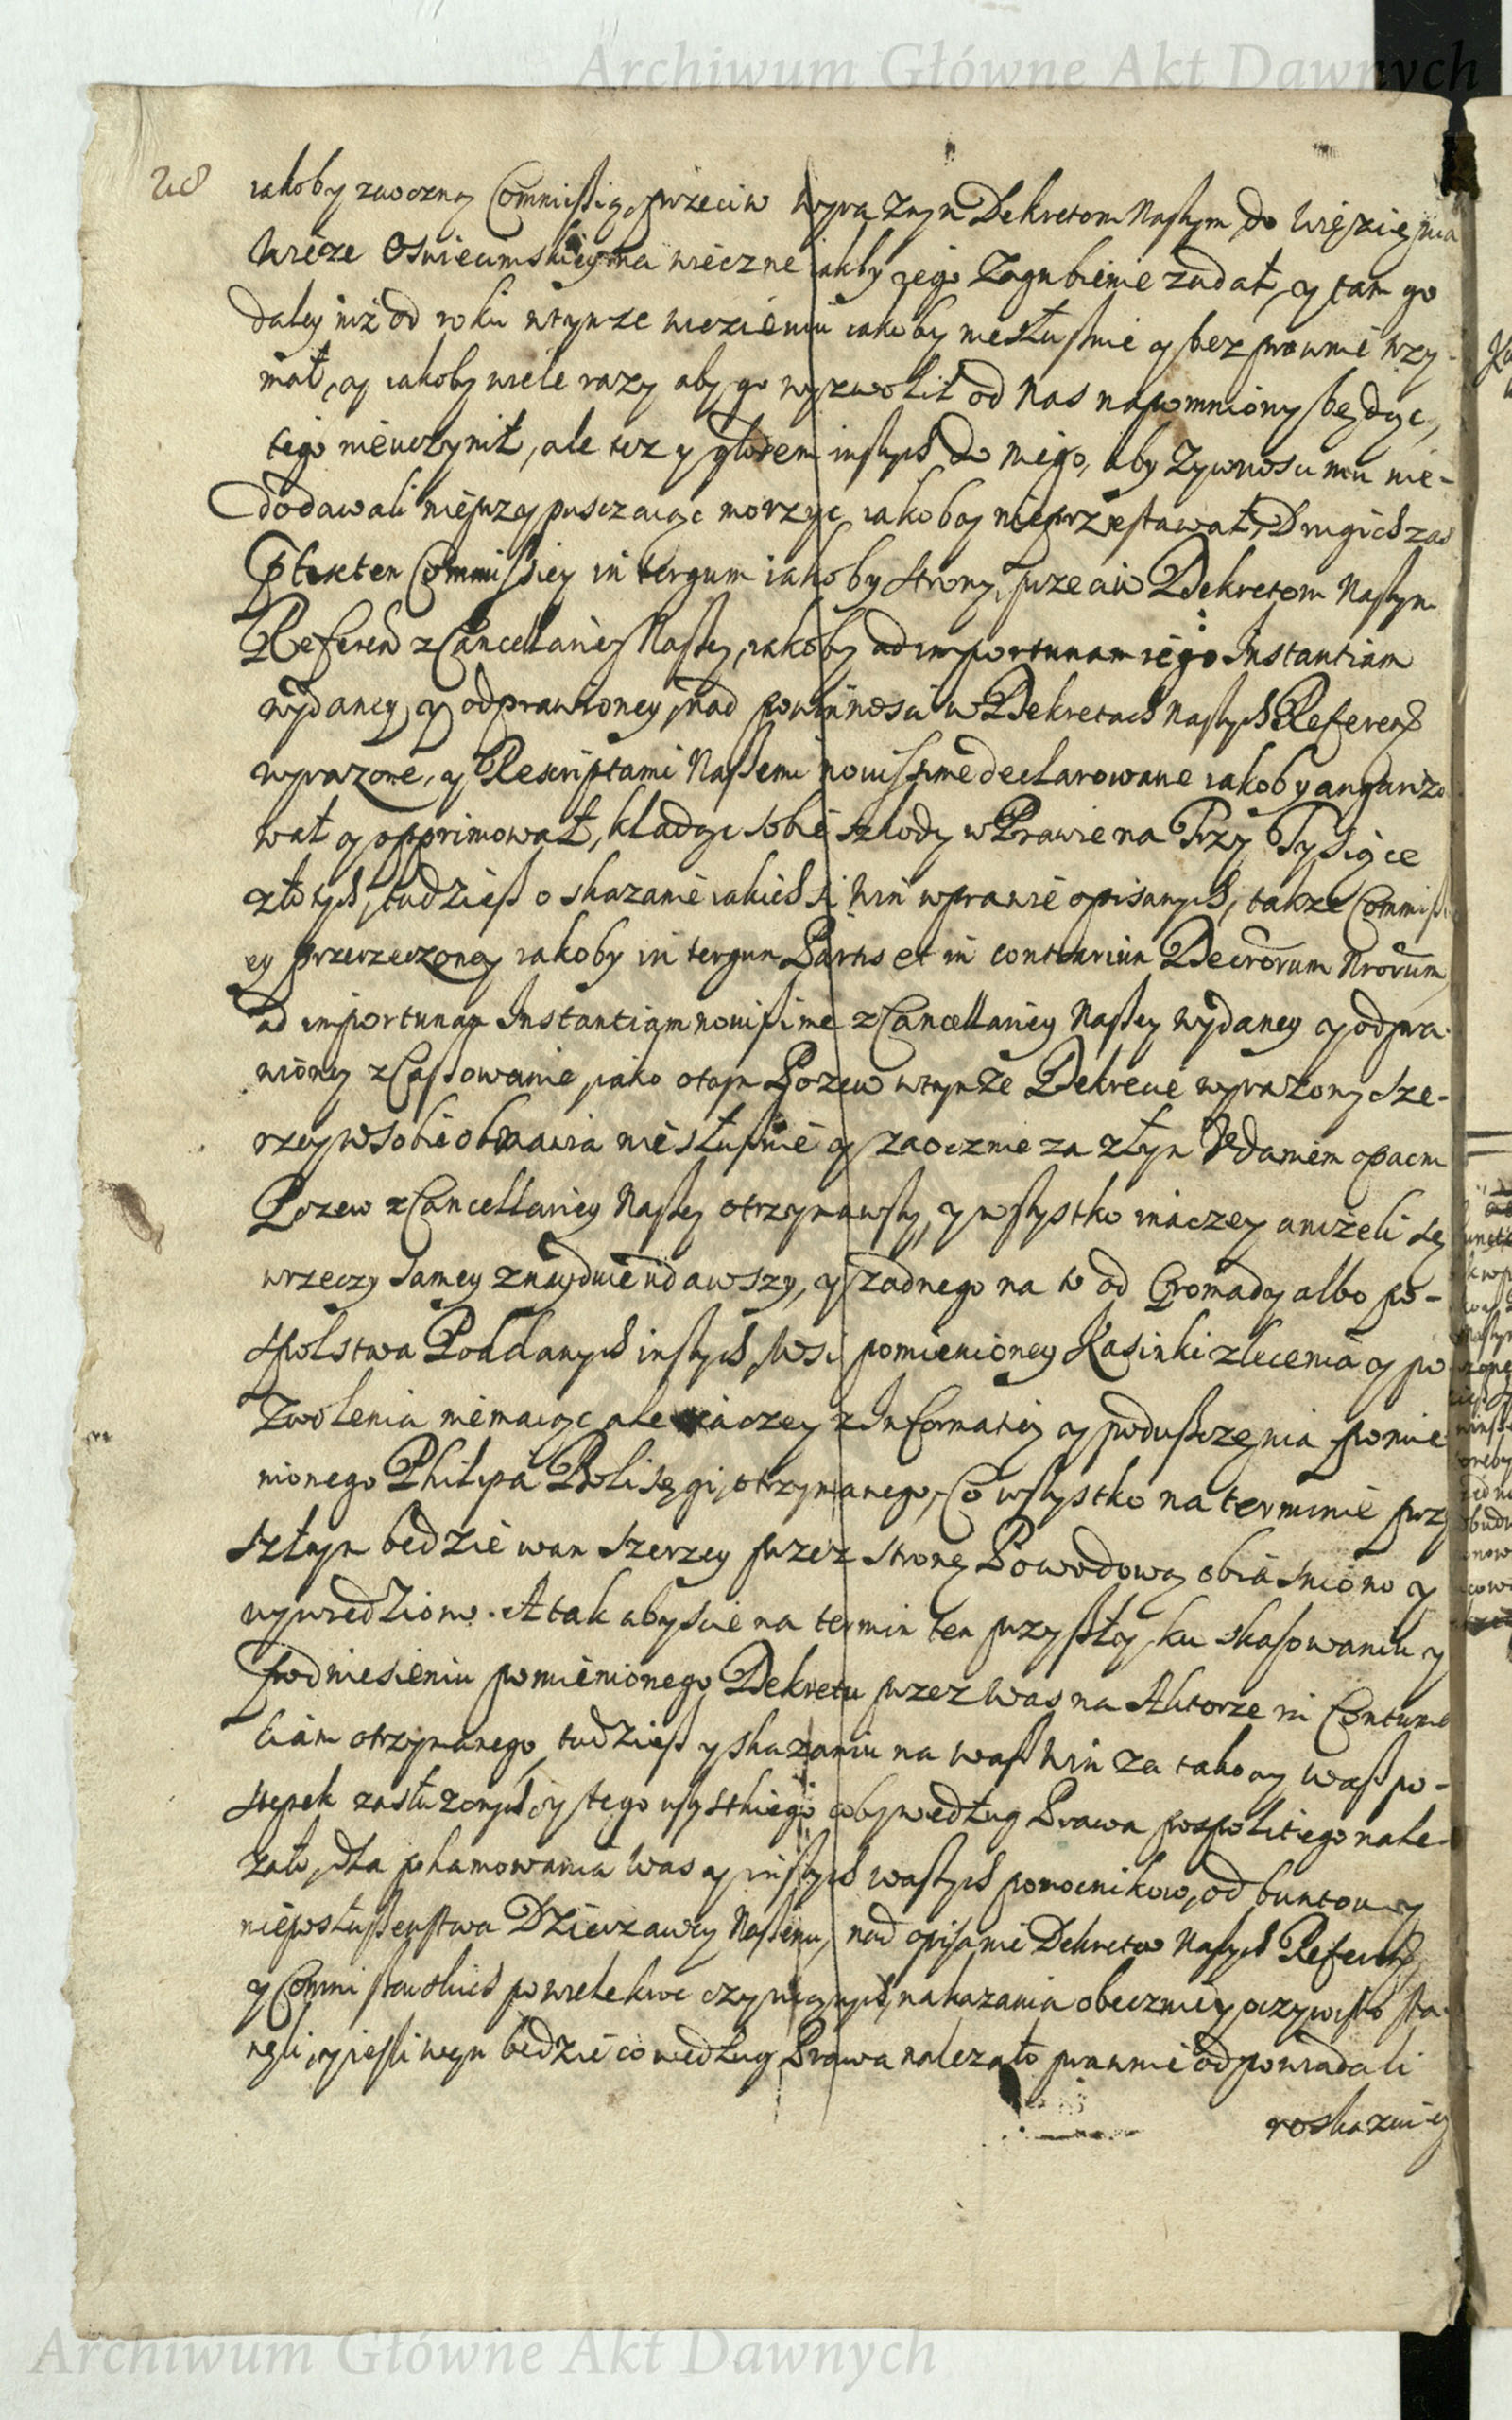 Archiwum Główne Akt Dawnych
28
iakoby zaoczną Commissią, przeciw wyraznym Dekretom Naszym do więzienia
wieże Oswiecimskiey na wieczne iakby iego zagubienie zadał, y tam go
daley niż od roku w tymże więzieniu iakoby niesłusznie y bezprawnie trzy-
mał, y iakoby wiele razy aby go wyzwolił od Nas napomniony będąc,
tego nieuczynił, ale tez y głodem inszych do niego, aby zywnosci mu nie-
dodawali nieprzypusczaiąc morzyc iakoby nieprzestawał, Drugich zas
Commissiey in tergum iakoby strony, przeciw Dekretom Naszym
Referend z Cancellariey Naszey, iakoby ad importunam iego Instantiam
wydaney y odprawioney, nad powinnosci w Dekretach naszych Referend
wyrazone, y Rescriptami Naszemi nouissime declarowane iakoby angarizo
wał y opprimował, kładąc sobie szkody w Prawie na Trzy Tysiące
złotych, tudziesz o skazanie iakichsi win w prawie opisanych, takze Commissi
ey przerzeczoney iakoby in tergum Partis et in contrarium Decrorum Nrorum
ad importunam Instantiam nouissime z Cancellariey Naszey wydaney y odpra-
wioney zCassowanie, iako o tym Pozew w tymże Dekrecie wyrazony sze-
rzey w sobie obmawia niesłusznie y zaocznie za złym Udaniem opacznie
Pozew z Cancellariey Naszey otrzymawszy, y wszystko inaczey anizeli się
w rzeczy samey znayduie udawszy, y zadnego na to od Gromady albo po-
spolstwa Poddanych inszych, Wsi pomienioney Kasinki zlecenia y po
zwolenia niemaiąc ale raczey z Informatiey y poduszczenia pomie
nionego Philipa Bolisęgi, otrzymanego, Co wszystko na terminie przy
szłym będzie wam szerzey przez stronę Powodową obiasniono y
wywiedziono. A tak abyscie na termin ten przyszły, ku skasowaniu y
podniesieniu pomienionego Dekretu przez was na Aktorze in Contuma
ciam otrzymanego, tudziesz y skazaniu na wasz win za takowy wasz po-
stępek zasłuzonych y tego wszystkiego coby według Prawa pospolitego nale-
zało, dla pohamowania was y inszych waszych pomocnikow, od buntow y
nieposłuszenstwa Dzierzawcy Naszemu, nad opisanie Dekretow Naszych Referend
y Commissarskich powielekroc czyniących, nakazania obecznie y oczywisto sta-
nęli, y iesli wczym będzie co według Prawa nalezało prawnie odpowiadali
roskazuię
Archiwum Główne Akt Dawnych